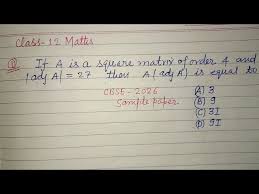 Class-12 Maths
Q If A is a square matrix of order 4 and
|adj A| = 27 then A(adj A) is equal to
CBSE-2026
Sample paper
(A) 3
(B) 9
(C) 3I
(D) 9I